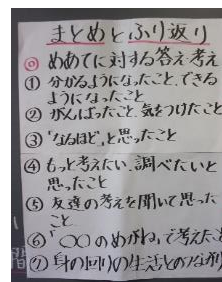 まとめとふり返り
◎ めあてに対する答え考え
① 分かるようになったこと、できる
ようになったこと
② がんばった、気をつけたこと
③ 「なるほど」と思ったこと
④ もっと考えたい、調べたいと
思ったこと
⑤ 友達の考えを聞いて思った
こと
⑥ 「〇〇のめがね」で考えたこと
⑦ 身の回りの生活とのつながり